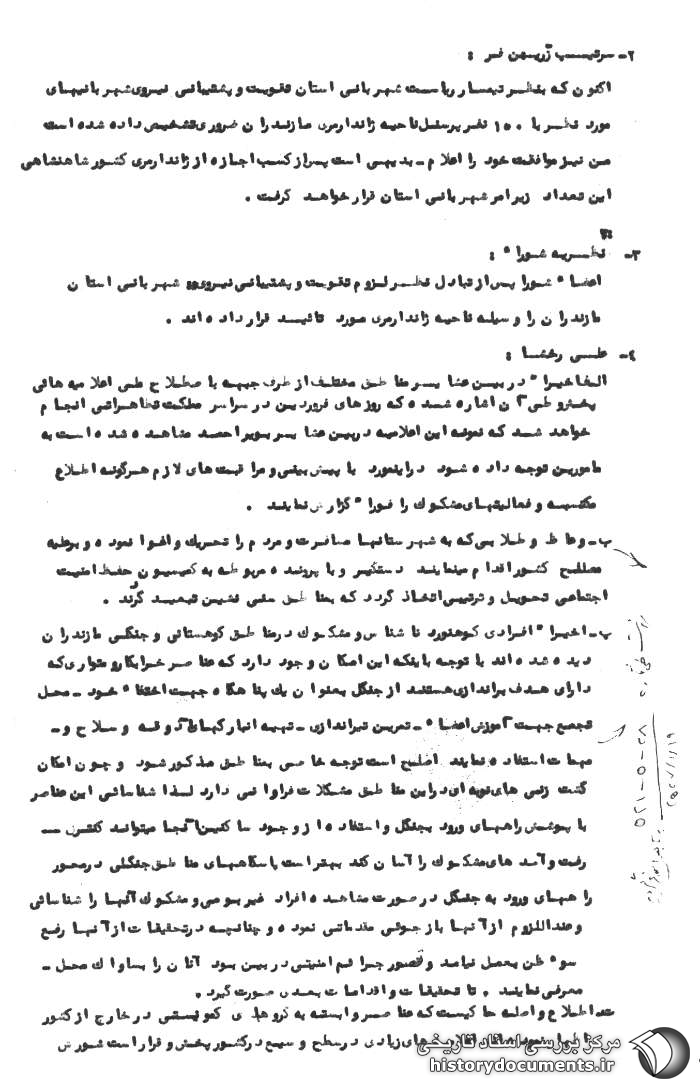 ۲- سرتیپ آریین فر :
اکنون که بنظر تیمسار ریاست شهربانی استان تقویت و پشتیبانی نیروی شهربانیهای
مورد نظر با ۱۰۰ نفر پرسنل ناحیه ژاندارمری مازندران ضروری تشخیص داده شده است
من نیز موافقت خود را اعلام - بدیهی است پس از کسب اجازه از ژاندارمری کشور شاهنشاهی
این تعداد زیر امر شهربانی استان قرار خواهد گرفت .
۳- نظریه شورا :
اعضاء شورا پس از تبادل نظر لزوم تقویت و پشتیبانی نیروی شهربانی استان
مازندران را وسیله ناحیه ژاندارمری مورد تائید قرار داده اند .
۴-
الف اخیرا" در بین عشایر مناطق مختلف از طرف جبهه با صطلاح ملی اعلامیه هائی
پخش و طی آن اشاره شده که روزهای فروردین در سراسر مملکت تظاهراتی انجام
خواهد شد که نمونه این اعلامیه در بین عشایر بویراحمد مشاهده شده است به
مامورین توجه داده شود در اینمورد با پیش بینی و مراقبت های لازم هرگونه اطلاع
مکتسبه و فعالیتهای مشکوک را فورا" گزارش نمایند .
ب- وعاظ و طلابی که به شهرستانها مسافرت و مردم را تحریک و اغوا نموده و برعلیه
مصالح کشور اقدام مینمایند دستگیر و با پرونده مربوطه به کمیسیون حفظ امنیت
اجتماعی تحویل و ترتیبی اتخاذ گردد که بمناطق سنی نشین تبعید گردند .
پ- اخیرا" افرادی کوهنورد ناشناس و مشکوک در مناطق کوهستانی و جنگلی مازندران
دیده شده اند با توجه باینکه این امکان وجود دارد که عناصر خرابکار و متواری که
دارای هدف براندازی هستند از جنگل بعنوان یک پناهگاه جهت اختفاء خود - محل
تجمع جهت آموزش اعضاء - تمرین تیراندازی - تهیه انبارکهای آذوقه و سلاح و-
مهمات استفاده نمایند اصلح است توجه خاصی بمناطق مذکور شود و چون امکان
گشت زنی های نوبه ای در این مناطق مشکلات فراوانی دارد لذا شناسائی این عناصر
با پوشش راههای ورود بجنگل و استفاده از وجود ساکنین آنجا میتواند کنترل -
رفت و آمدهای مشکوک را آسان کند بهتر است پاسگاههای مناطق جنگلی در محور
راههای ورود به جنگل در صورت مشاهده افراد غیربومی و مشکوک آنها را شناسائی
و عنداللزوم از آنها بازجوئی مقدماتی نموده و چنانچه در تحقیقات از آنها رفع
سوءظن بعمل نیامد و قصور جرائم امنیتی در بین بود آنان را بساواک محل -
معرفی نمایند . تا تحقیقات و اقدامات بعدی صورت گیرد .
ت- اطلاع واصله حاکیست که عناصر وابسته به گروههای کمونیستی در خارج از کشور
های زیادی در سطح وسیع در کشور پخش و قرار است شورش
۵۲۱-۵-۲۸
مرکز بررسی اسناد تاریخی
historydocuments.ir